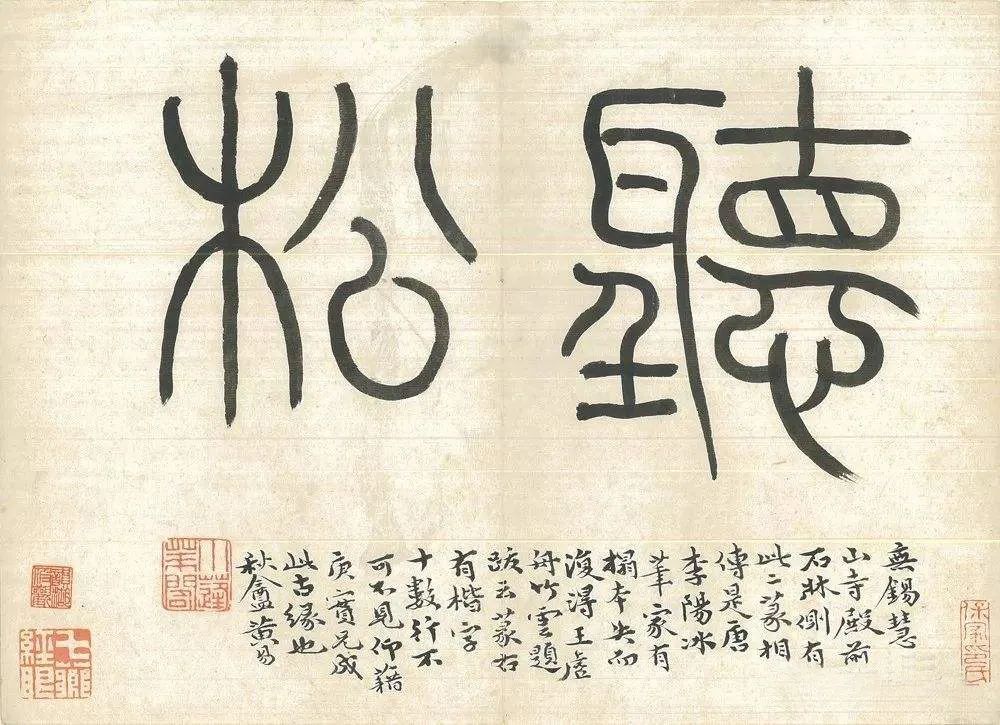 聽松
無錫慧
山寺殿前
石牀側有
此二篆相
傳是唐
李陽冰
筆家有
搨本失而
復得王虛
舟竹雲題
跋云篆右
有楷字
十數行不
可不見仰藉
實兄成
此古緣也
秋盦黃易
小蓬萊閣